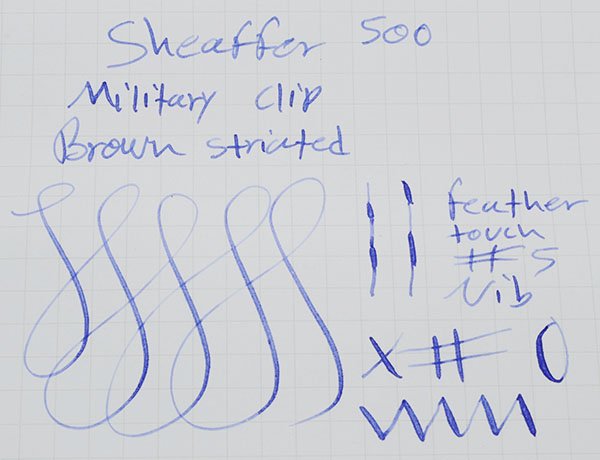 Sheaffer 500
Military clip
Brown striated
feather
touch
#5
Nib
X # 0